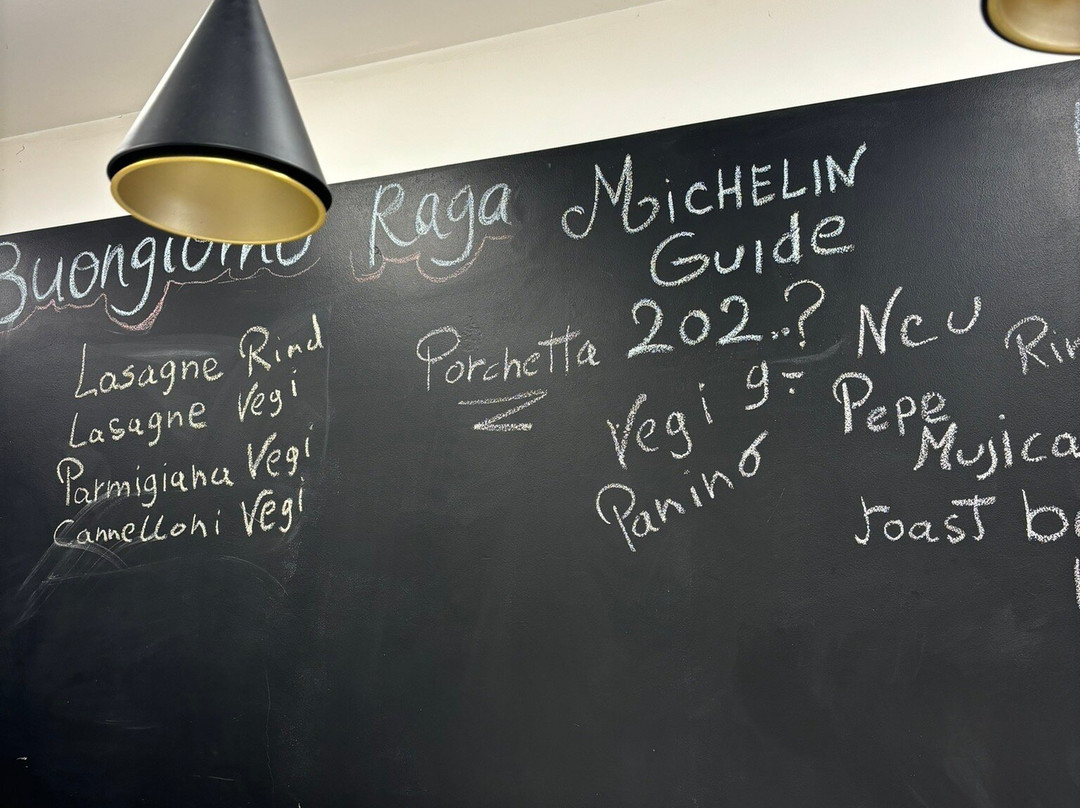 Buongiorno Raga
MicHELIN
Guide
202..?
Lasagne Rind
Lasagne Vegi
Parmigiana Vegi
Cannelloni Vegi
Porchetta
Vegi 9.-
Panino
Neu
Pepe
Mujica
roast